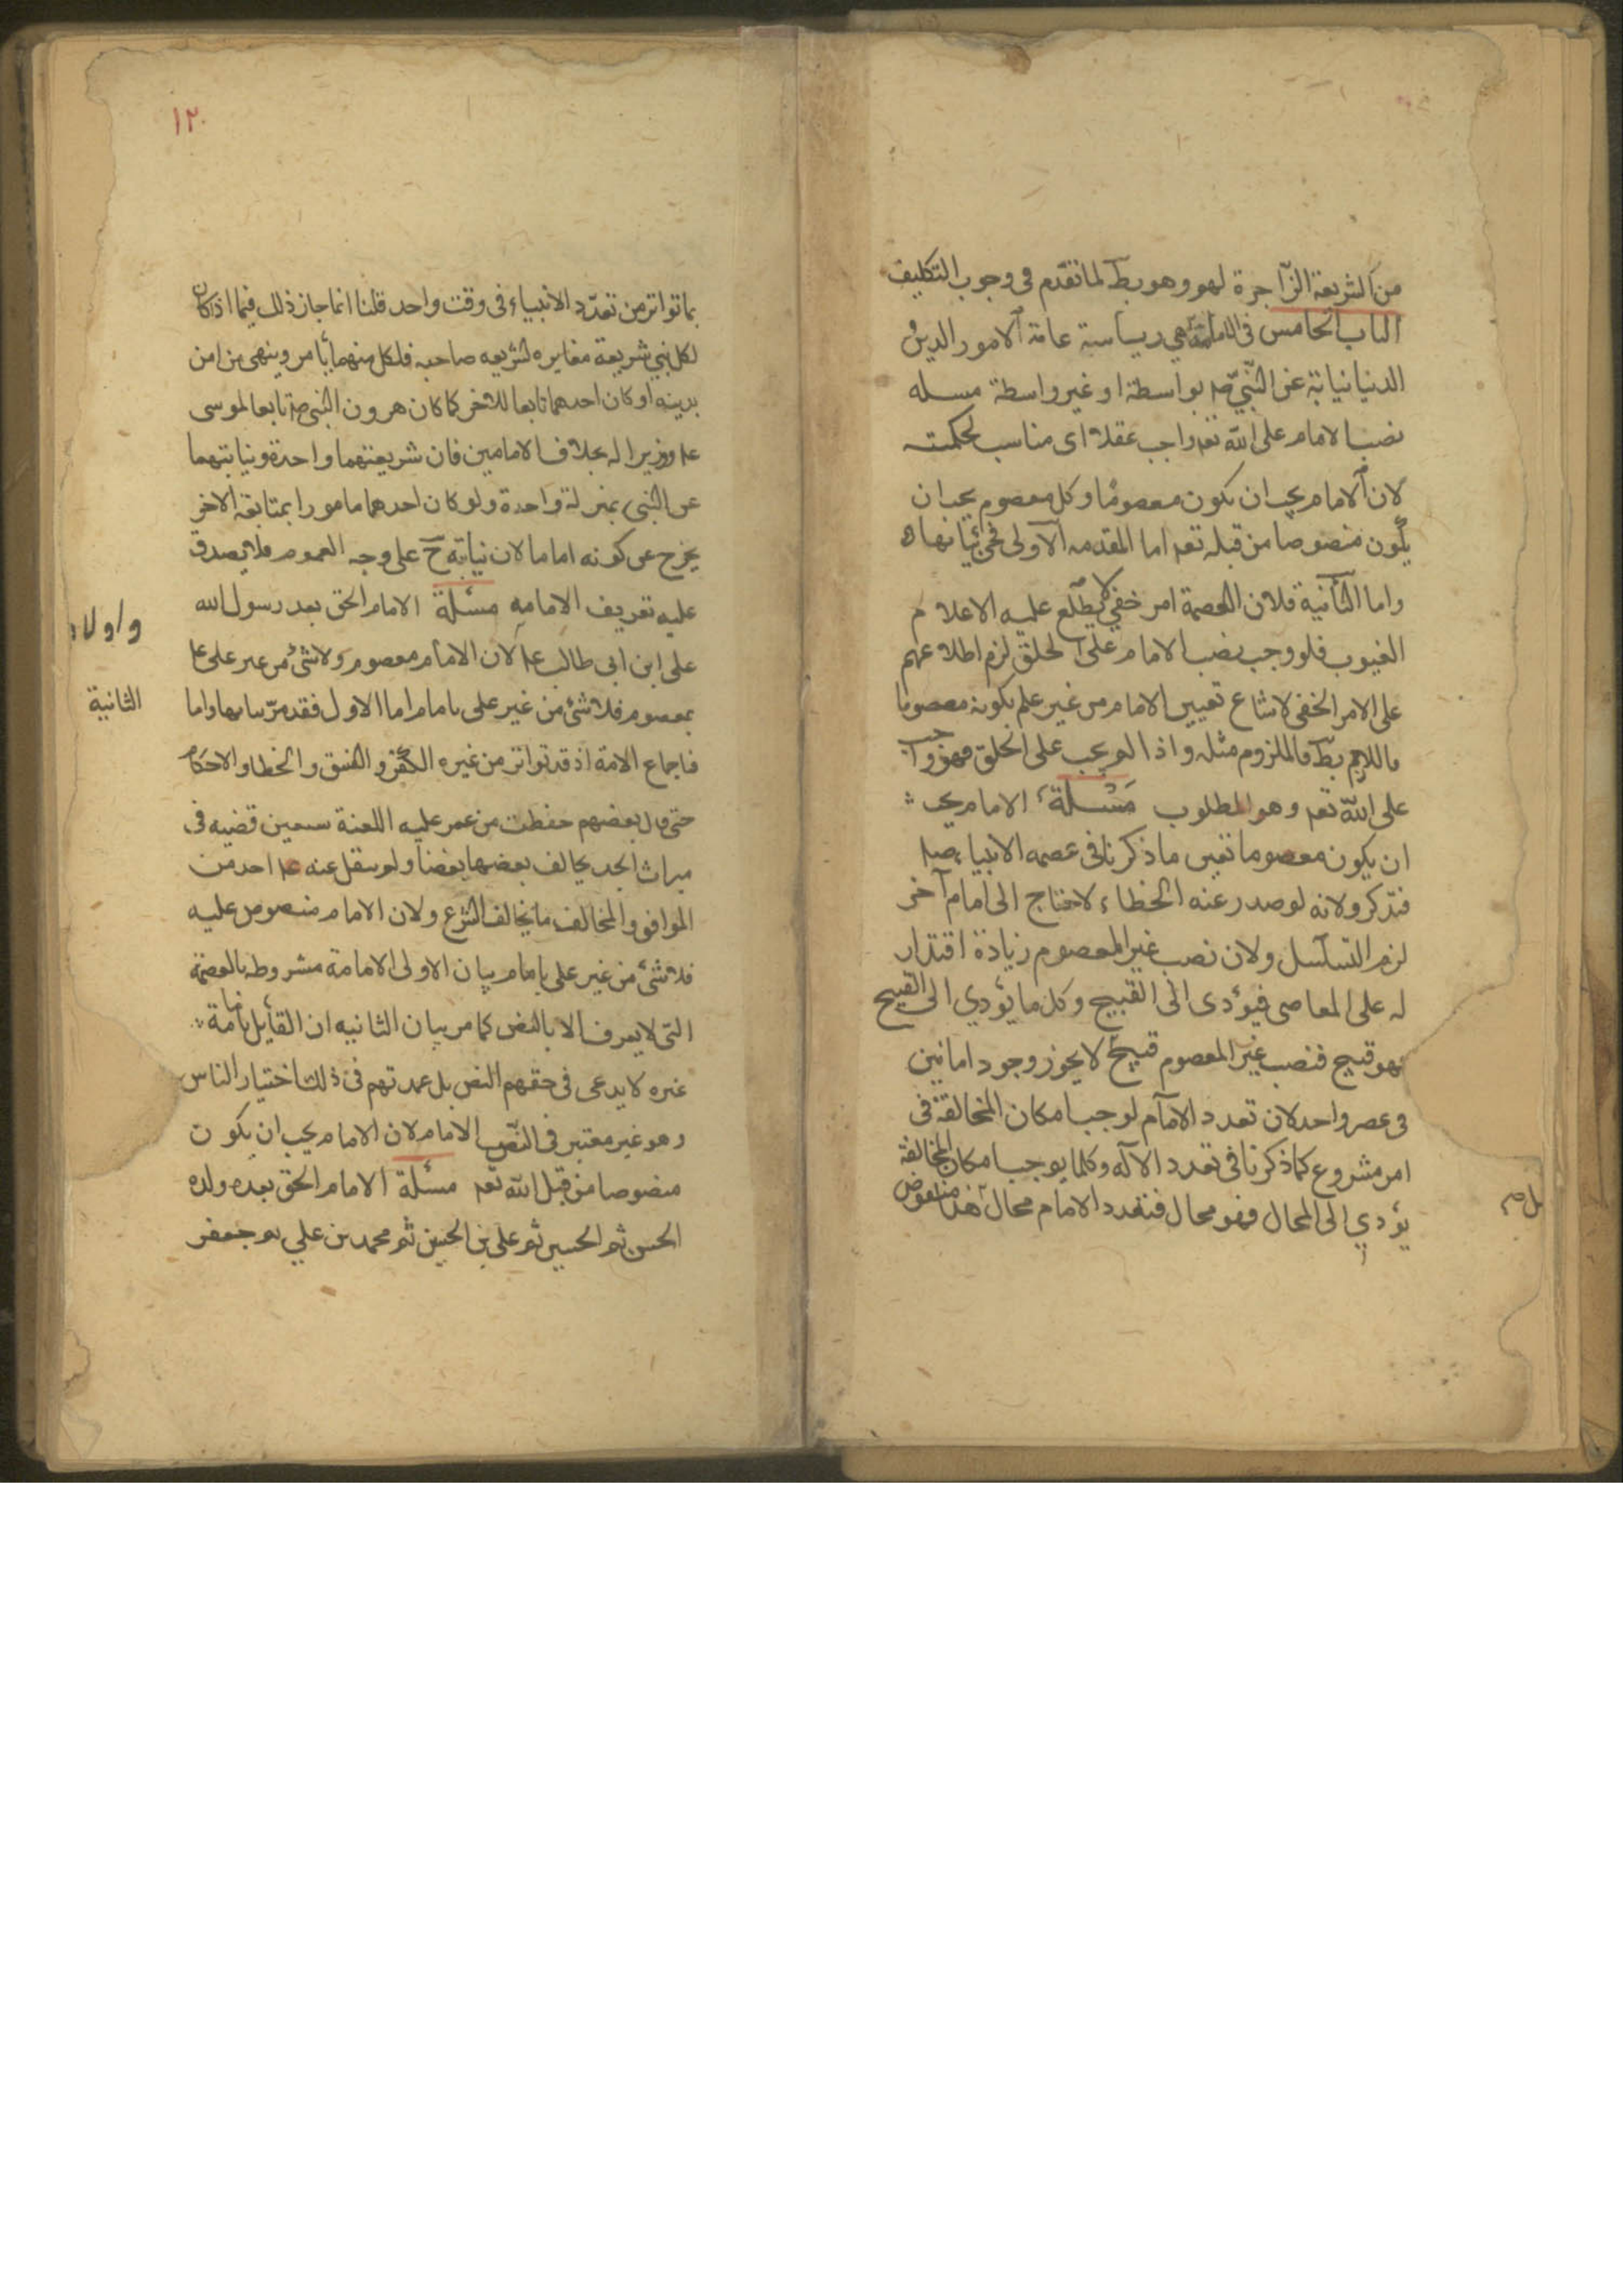 من الشريعة الزاجرة لهو وهو بط لما تقدم فى وجوب التكليف
الباب الخامس فى الامامة هي رياسة عامة الامور الدين و
الدنيا نيابة عن النبي صه بواسطة او غير واسطة مسله
نصب الامام على الله تعه واجب عقلا اى مناسب لحكمته
لان الامام يجب ان يكون معصوما وكل معصوم يجب ان
يكون منصوصا من قبله تعه اما المقدمه الاولى فجئ بيانها
واما الثانية فلان العصمة امر خفي لا يطلع عليه الاعلام
الغيوب فلو وجب نصب الامام على الخلق لزم اطلاعهم
على الامر الخفى لامتناع تعيين الامام من غير علم بكونه معصوما
واللازم بط فالملزوم مثله واذا لم يجب على الخلق فهو واجب
على الله تعه وهو المطلوب مسئلة الامام يجب
ان يكون معصوما بعين ما ذكرنا فى عصمه الانبياء
فتذكر ولانه لو صدر عنه الخطاء لاحتاج الى امام آخر
لزم التسلسل ولان نصب غير المعصوم زيادة اقتدار
له على المعاصى فيؤدى الى القبيح وكل ما يؤدي الى القبيح
فهو قبيح فنصب غير المعصوم قبيح لا يجوز وجود امامين
فى عصر واحد لان تعدد الامام لوجب امكان المخالفة فى
امر مشروع كما ذكرنا فى تعدد الآله وكلما يوجب امكان المخالفة
يؤدي الى المحال فهو محال فتعدد الامام محال هذا منقوض
١٢٠
بما تواتر من تعدد الانبياء فى وقت واحد قلنا انما جاز ذلك فيما اذا كان
لكل نبي شريعة مغايره لشريعه صاحبه فلكل منهما يأمر وينهى من امن
بدينه او كان احدهما تابعا للاخر كما كان هرون النبى صه تابعا لموسى
عله ووزيرا له بخلاف الامامين فان شريعتهما واحدة ونيابتهما
عن النبي بمنزلة واحدة ولو كان احدهما مامورا بمتابعة الاخر
يخرج عن كونه اماما لان نيابته ح على وجه العموم فلا يصدق
عليه تعريف الامامه مسئلة الامام الحق بعد رسول الله
على ابن ابى طالب عله لان الامام معصوم ولا شئ من غير على عله
بمعصوم فلا شئ من غير على بامام اما الاول فقد مر بيانها واما
الثانية
فاجماع الامة اذ قد تواتر من غيره الكفر والفسق والخطا والاحكام
حتى قال بعضهم حفظت من عمر عليه اللعنة سبعين قضيه فى
ميراث الجد يخالف بعضها بعضا ولم ينقل عنه عله احد من
الموافق والمخالف ما يخالف الشرع ولان الامام منصوص عليه
فلا شئ من غير على بامام بيان الاولى الامامة مشروطه بالعصمة
التى لا يعرف الا بالنص كما مر بيان الثانيه ان القائل بامامة
غيره لا يدعى فى حقهم النص بل عمدتهم فى ذلك اختيار الناس
وهو غير معتبر فى النص الامام لان الامام يجب ان يكون
منصوصا من قبل الله تعه مسئلة الامام الحق بعده ولده
الحسن ثم الحسين ثم على بن الحسين ثم محمد بن علي ثم جعفر